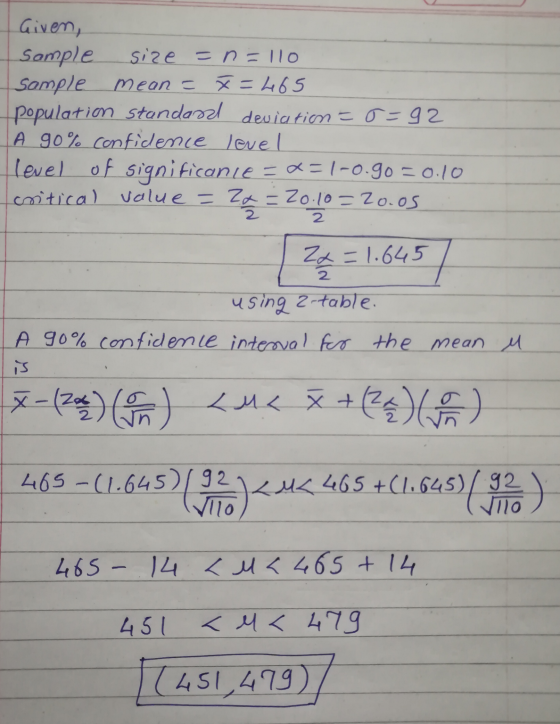 Given,
sample size = n = 110
sample mean = x̄ = 465
population standard deviation = σ = 92
A 90% confidence level
level of significance = α = 1-0.90 = 0.10
critical value = Zα/2 = Z0.10/2 = Z0.05
Zα/2 = 1.645
using z-table.
A 90% confidence interval for the mean μ
is
x̄ - (Zα/2)(σ/√n) < μ < x̄ + (Zα/2)(σ/√n)
465 - (1.645)(92/√110) < μ < 465 + (1.645)(92/√110)
465 - 14 < μ < 465 + 14
451 < μ < 479
(451, 479)